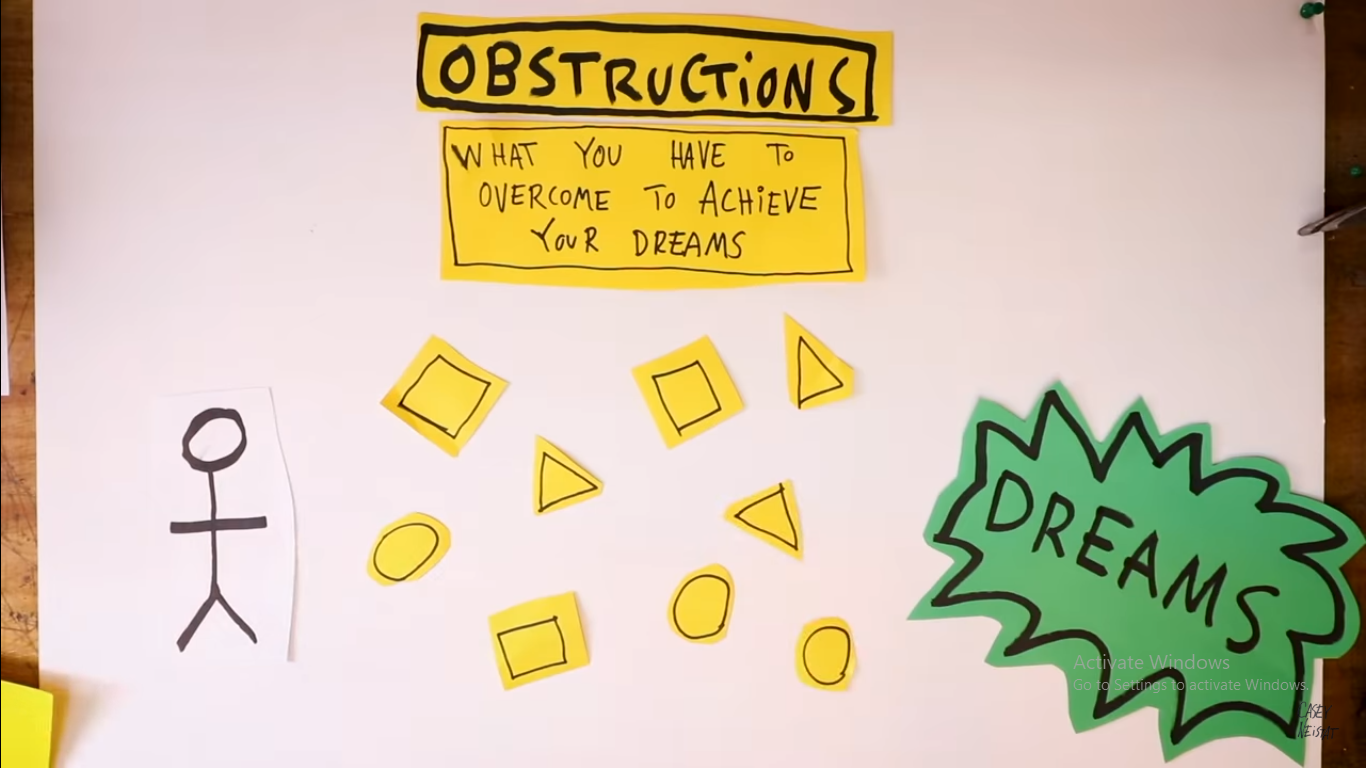 OBSTRUCTiONS
WHAT YOU HAVE TO
OVERCOME TO ACHiEVE
YouR DREAMS
DREAMS
Activate Windows
Go to Settings to activate Windows.
CASEY
NEiSTAT